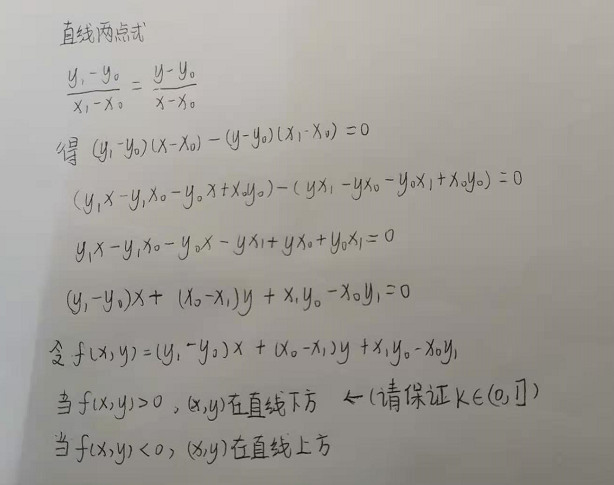 直线两点式
(y₁-y₀)/(x₁-x₀) = (y-y₀)/(x-x₀)
得 (y₁-y₀)(x-x₀)-(y-y₀)(x₁-x₀)=0
(y₁x-y₁x₀-y₀x+x₀y₀)-(yx₁-yx₀-y₀x₁+x₀y₀)=0
y₁x-y₁x₀-y₀x-yx₁+yx₀+y₀x₁=0
(y₁-y₀)x+(x₀-x₁)y+x₁y₀-x₀y₁=0
令f(x,y)=(y₁-y₀)x+(x₀-x₁)y+x₁y₀-x₀y₁
当f(x,y)>0,(x,y)在直线下方 ←(请保证K∈(0,1])
当f(x,y)<0,(x,y)在直线上方